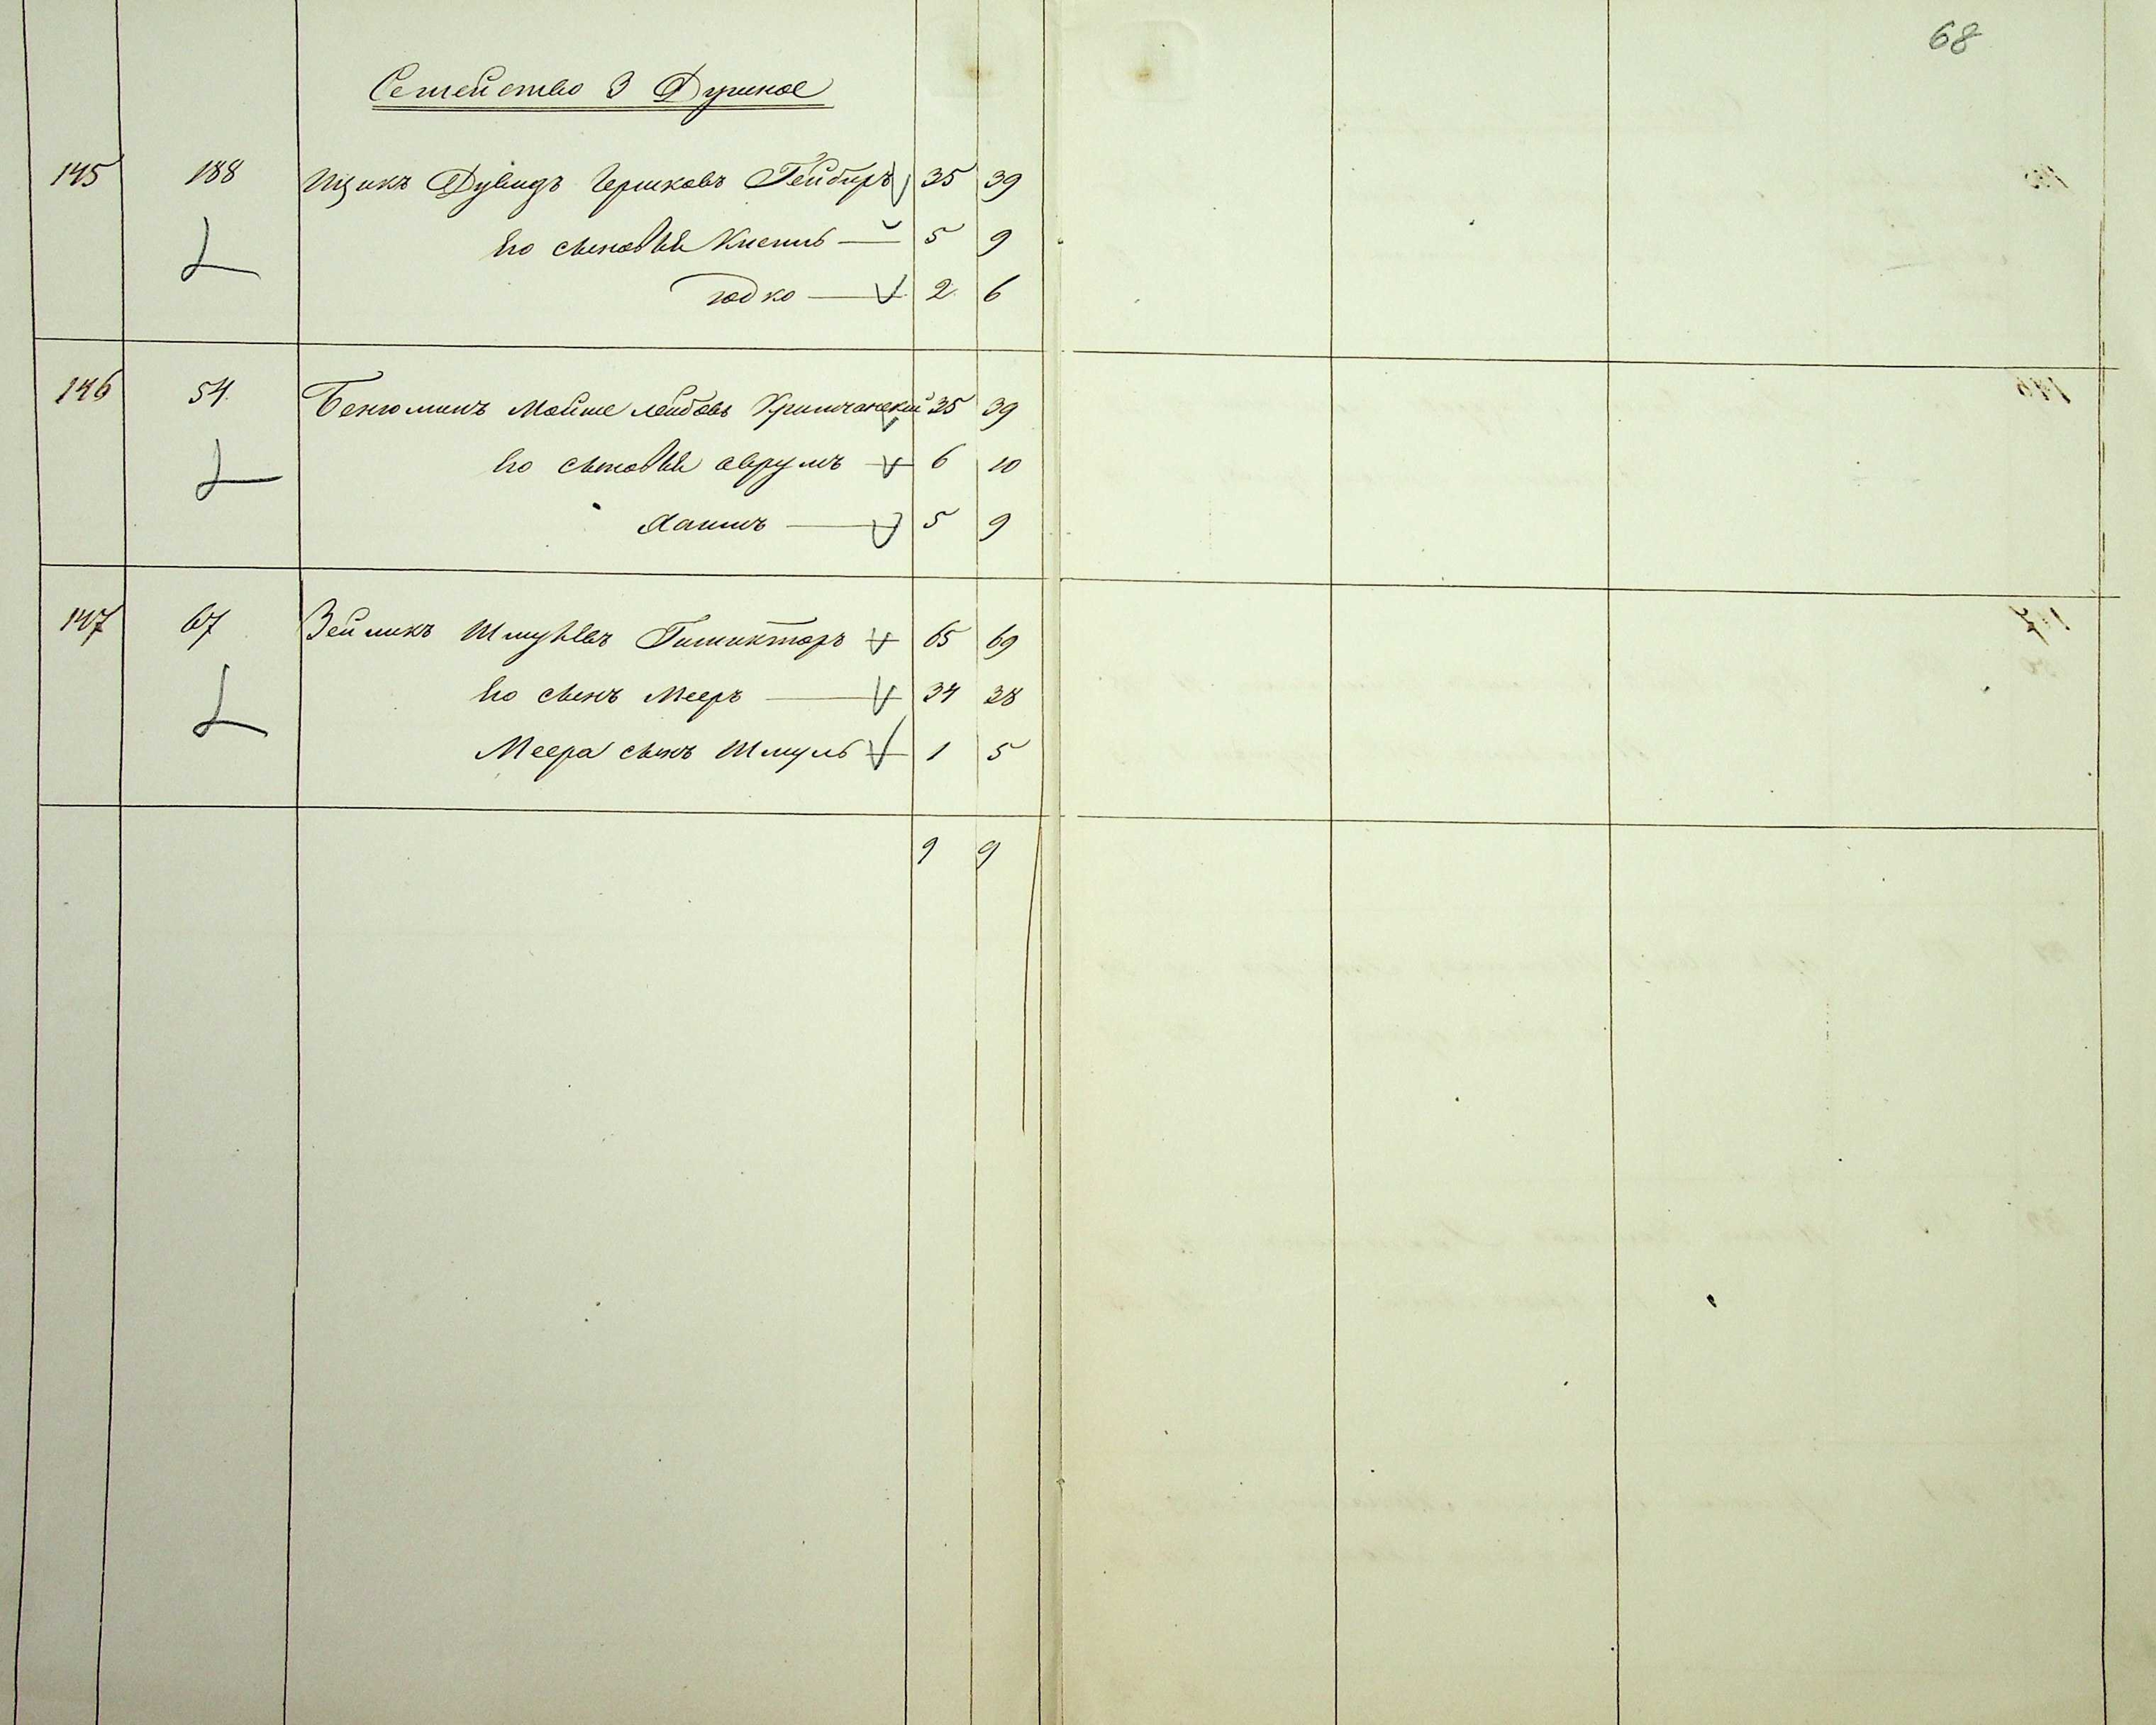 68
Семейство 3 Душное
145 188 Ицикъ Дувидъ Гершковъ Гейбиръ 35 39
Его сыновья Кисиль 5 9
Юдко 2 6
146 54 Бенюминъ Мойше Лейбовъ Кримчанский 35 39
Его сыновья Аврумъ 6 10
Хаимъ 5 9
147 67 Зейликъ Шмулевъ 65 69
Его сынъ Мееръ 34 38
Меера сынъ Шмуль 1 5
9 9